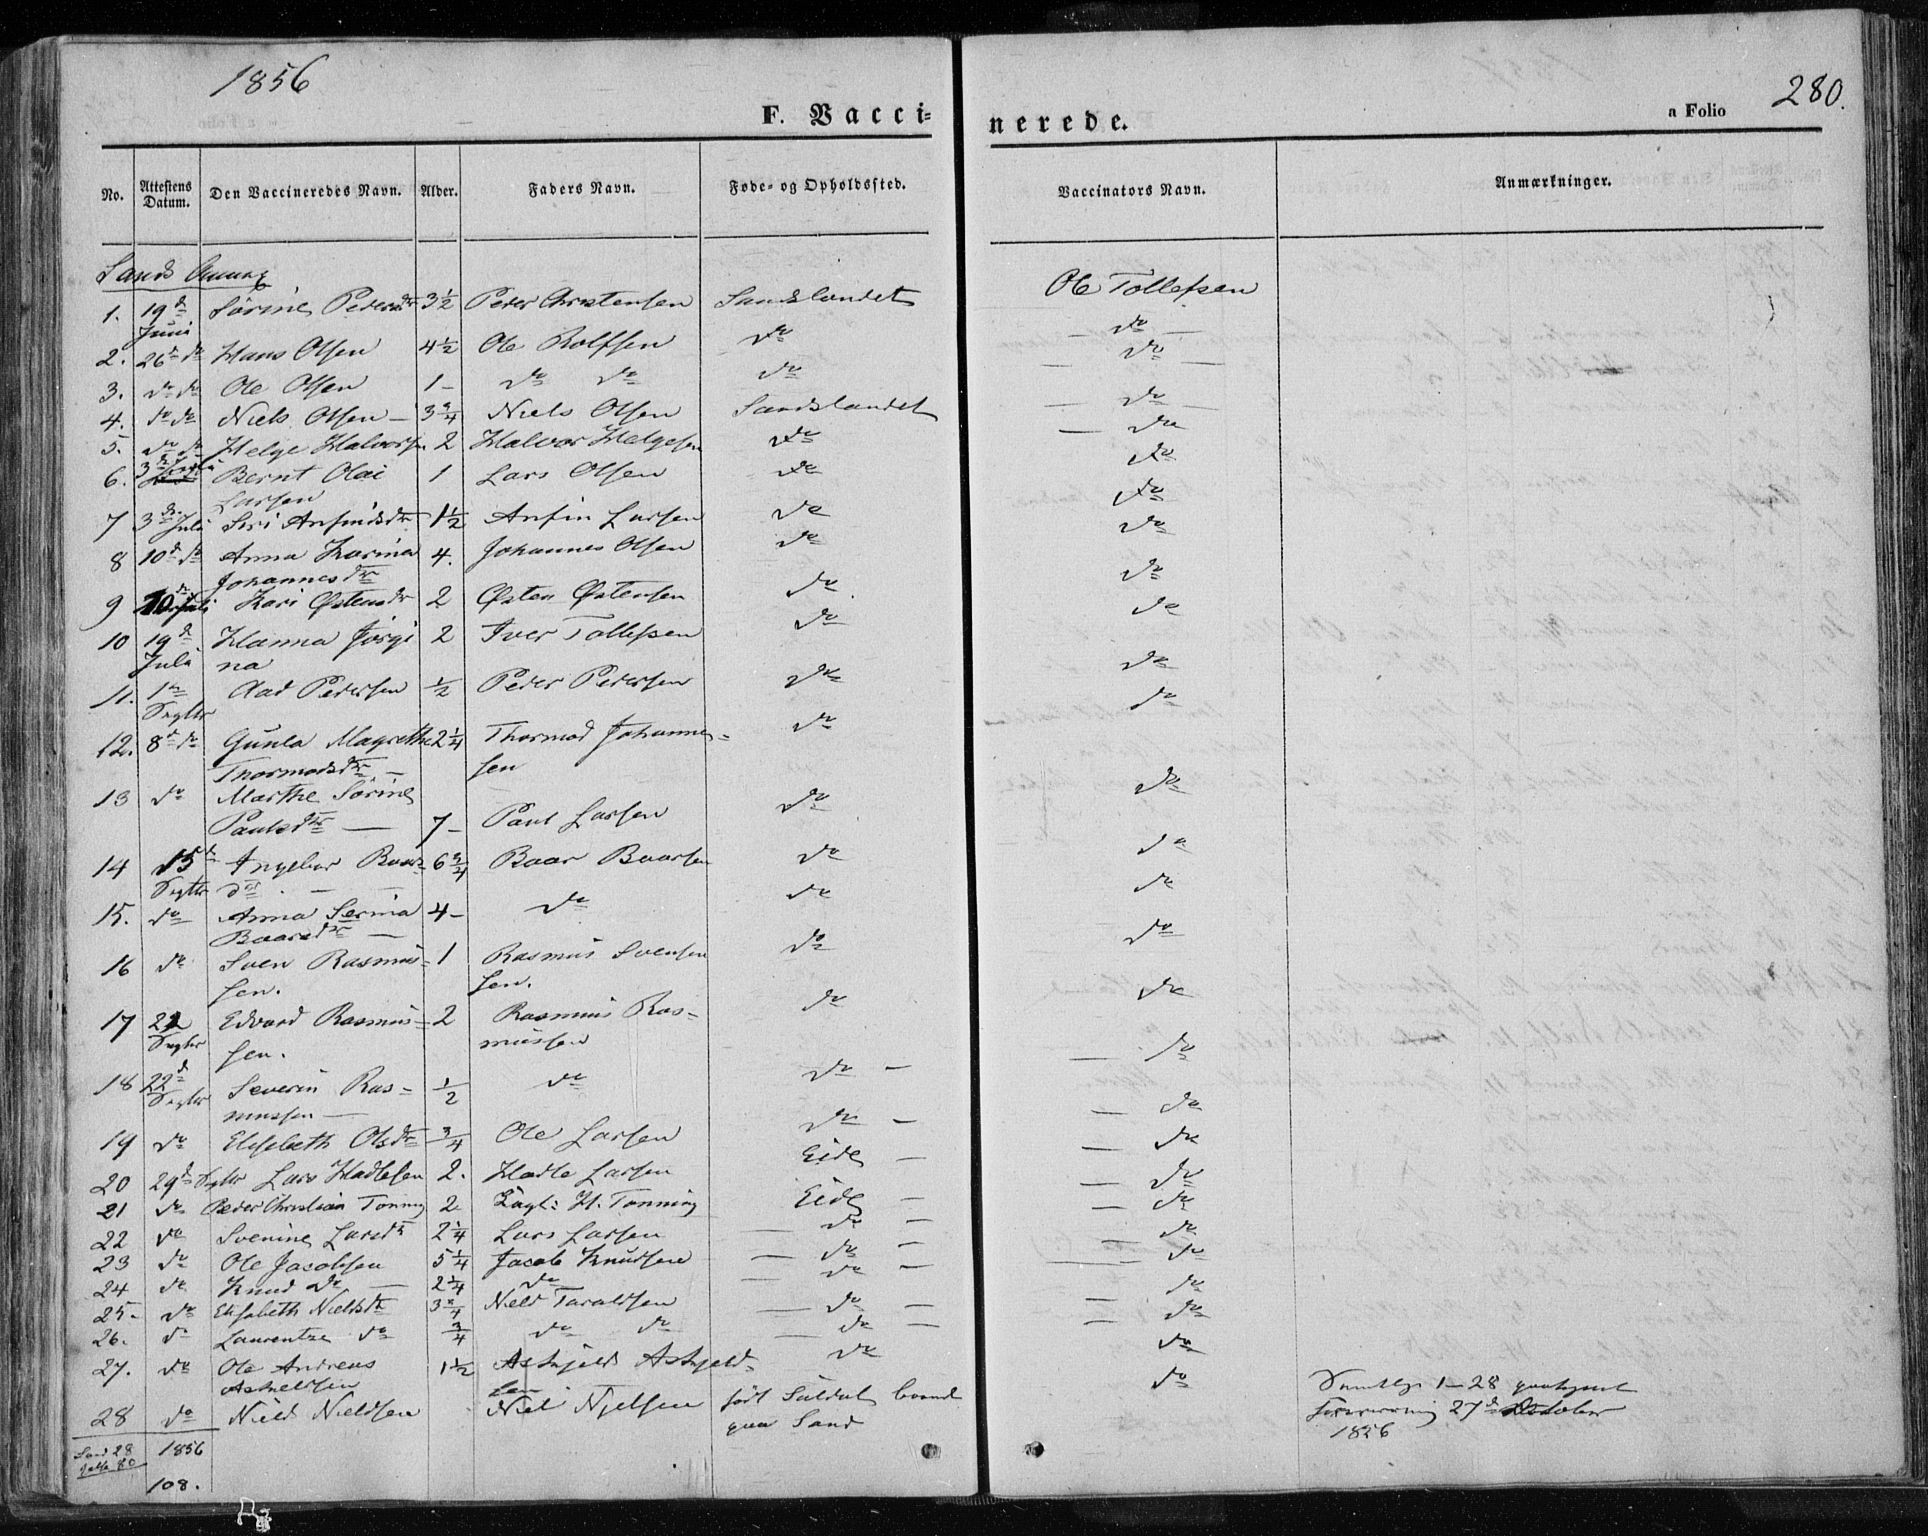 1856
F. Vacci-
nerede.
a Folio 280.
No. Attestens Datum. Den Vaccineredes Navn. Alder. Faders Navn. Føde- og Opholdssted. Vaccinators Navn. Anmærkninger.
Sands Annex
1. 19d Juni Sørine Pedersdtr 3 1/2 Peder Christensen Sandslandet Ole Tollefsen
2. 26d do Hans Olsen 4 1/2 Ole Rolfsen do do
3. do do Ole Olsen 1 - do do do do
4. do do Niels Olsen - 3 3/4 Niels Olsen Sandslandet do
5. do do Helge Halvorsen 2 Halvor Helgesen do do
6. 3d Juli Bernt Olai Larsen 1 Lars Olsen do do
7 3d Juli Siri Anfindsdtr 1 1/2 Anfin Larsen do do
8 10d do Anna Karina Johannesdtr 4. Johannes Olsen do do
9 10d Juli Kari Østensdtr 2 Østen Østensen do do
10 19d Juli Hanna Jörgina 2 Iver Tollefsen do do
11. 1n Septbr Aad Pedersen 1/2 Peder Pedersen do do
12. 8d do Gunla Magrethe Thormodsdtr - 2 1/4 Thormod Johannessen do do
13 do Marthe Sörine Paulsdtr - 7 - Paul Larsen do do
14 15d Septbr Ingebor Baarsdtr 6 3/4 Baar Baarsen do do
15. do Anna Serina Baarsdtr - 4 - do do do
16 do Sven Rasmussen. 1 Rasmus Svensen sen. do do
17 22 Septbr Edvard Rasmussen. 2 Rasmus Rasmussen do do
18 22d Septbr Severin Rasmussen - 1/2 do do - do
19 do Elisabeth Olsdtr 3/4 Ole Larsen do - do
20 29d Septbr Lars Hadlesen 2. Hadle Larsen Eide - do
21 do Peder Christian Tonning 2. H. Tonning Eide - do
22 do Svenine Larsdtr 2 1/4 Lars Larsen do - do
23 do Ole Jacobsen 5 1/4 Jacob Knudsen do - do
24 do Knud do 2 1/4 do do - do
25. do Elisabeth Nieldsdtr Nield Taraldsen do - do
26. do Laurentze do 3/4 do do do - do
27. do Ole Andreas Askieldsen 1 1/2 Askjeld Askjeldsen do do
28 do Nield Nieldsen Niel Njelsen født Suldal boende paa Sand do
1-28
27d October
1856
Sand 28 1856
Jelse 80
108.